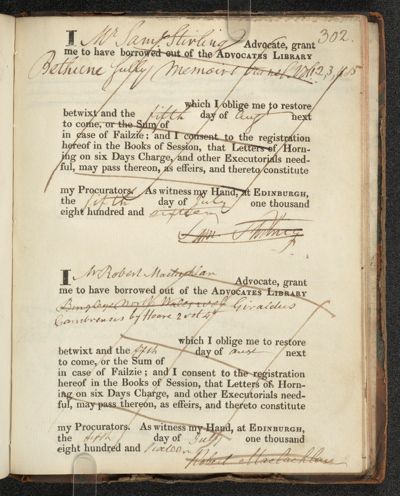 302.
I Mr Saml Stirling Advocate, grant
me to have borrowed out of the ADVOCATES LIBRARY
Bethune Sully Memoirs 1, 2, 3, 4, 5
which I oblige me to restore
betwixt and the fifth day of augt next
to come, or the Sum of
in case of Failzie; and I consent to the registration
hereof in the Books of Session, that Letters of Horn-
ing on six Days Charge, and other Executorials need-
ful, may pass thereon, as effeirs, and thereto constitute
my Procurators. As witness my Hand, at EDINBURGH,
the fifth day of July one thousand
eight hundred and sixteen
Sam Stirling
I Mr Robert Maclachlan Advocate, grant
me to have borrowed out of the ADVOCATES LIBRARY
Giraldus
Cambrensis by Hoare 2 vol 4o
which I oblige me to restore
betwixt and the fifth day of augt next
to come, or the Sum of
in case of Failzie; and I consent to the registration
hereof in the Books of Session, that Letters of Horn-
ing on six Days Charge, and other Executorials need-
ful, may pass thereon, as effeirs, and thereto constitute
my Procurators. As witness my Hand, at EDINBURGH,
the fifth day of July one thousand
eight hundred and sixteen
Robert Maclachlan